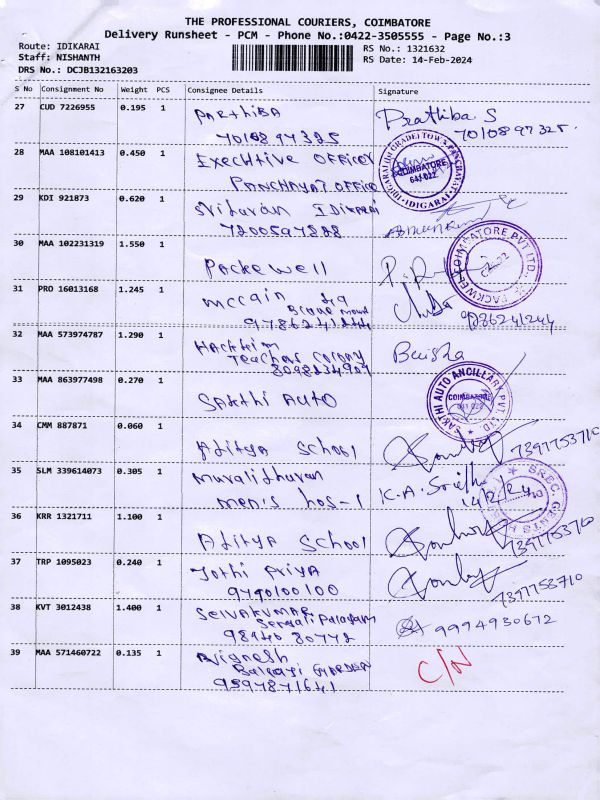 THE PROFESSIONAL COURIERS, COIMBATORE
Delivery Runsheet - PCM - Phone No.:0422-3505555 - Page No.:3
Route: IDIKARAI RS No.: 1321632
Staff: NISHANTH RS Date: 14-Feb-2024
DRS No.: DCJB132163203
S No Consignment No Weight PCS Consignee Details Signature
27 CUD 7226955 0.195 1 Parthiba Prathiba S
7010897325 7010897325
28 MAA 108101413 0.450 1 Executive officer
Panchayat office
COIMBATORE
641 022
IDIGARAI
29 KDI 921873 0.620 1
7200597828
30 MAA 102231319 1.550 1 Packewell
PACKWELL COIMBATORE PVT LTD.
31 PRO 16013168 1.245 1 mccain
9786241244 9786241244
32 MAA 573974787 1.290 1 Hackkim
Teachers colony
8098134907
33 MAA 863977498 0.270 1 Sakthi Auto
SAKTHI AUTO ANCILLARY PVT. LTD.
COIMBATORE
641 022
34 CMM 887871 0.060 1 Aditya School 7397753710
35 SLM 339614073 0.305 1 muralidharan K.A.
men's hos-1 14/2/24
36 KRR 1321711 1.100 1 Aditya School 7397753710
37 TRP 1095023 0.240 1 Jothi Priya
9790100100 7397753710
38 KVT 3012438 1.400 1 Selvakumar
9994930672
98140 80772
39 MAA 571460722 0.135 1 Vignesh C/N
Balaji Garden
9597871641